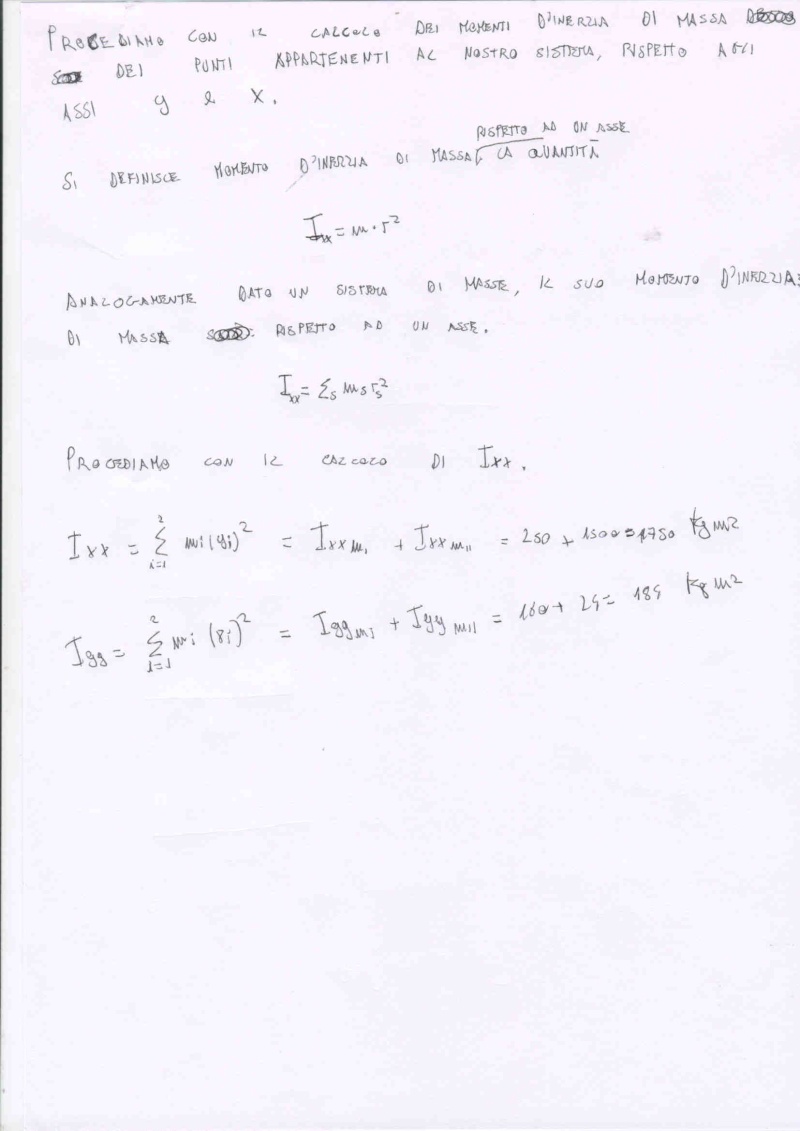 PROCEDIAMO CON IL CALCOLO DEI MOMENTI D'INERZIA DI MASSA
DEI PUNTI APPARTENENTI AL NOSTRO SISTEMA, RISPETTO AGLI
ASSI y e X.
RISPETTO AD UN ASSE
SI DEFINISCE MOMENTO D'INERZIA DI MASSA, LA QUANTITÀ
Ixx = m · r²
ANALOGAMENTE DATO UN SISTEMA DI MASSE, IL SUO MOMENTO D'INERZIA
DI MASSA RISPETTO AD UN ASSE.
Ixx = Σs ms rs²
PROCEDIAMO CON IL CALCOLO DI Ixx.
Ixx = Σ i=1 2 mi (yi)² = Ixx mI + Ixx mII = 250 + 1500 = 1750 kg m2
Iyy = Σ i=1 2 mi (xi)² = Iyy mI + Iyy mII = 160 + 24 = 184 kg m2